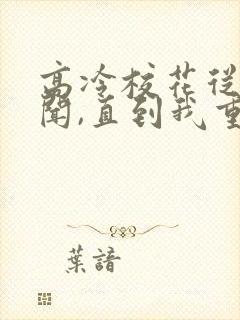 高冷校花從
聞,直到我重
葉諳